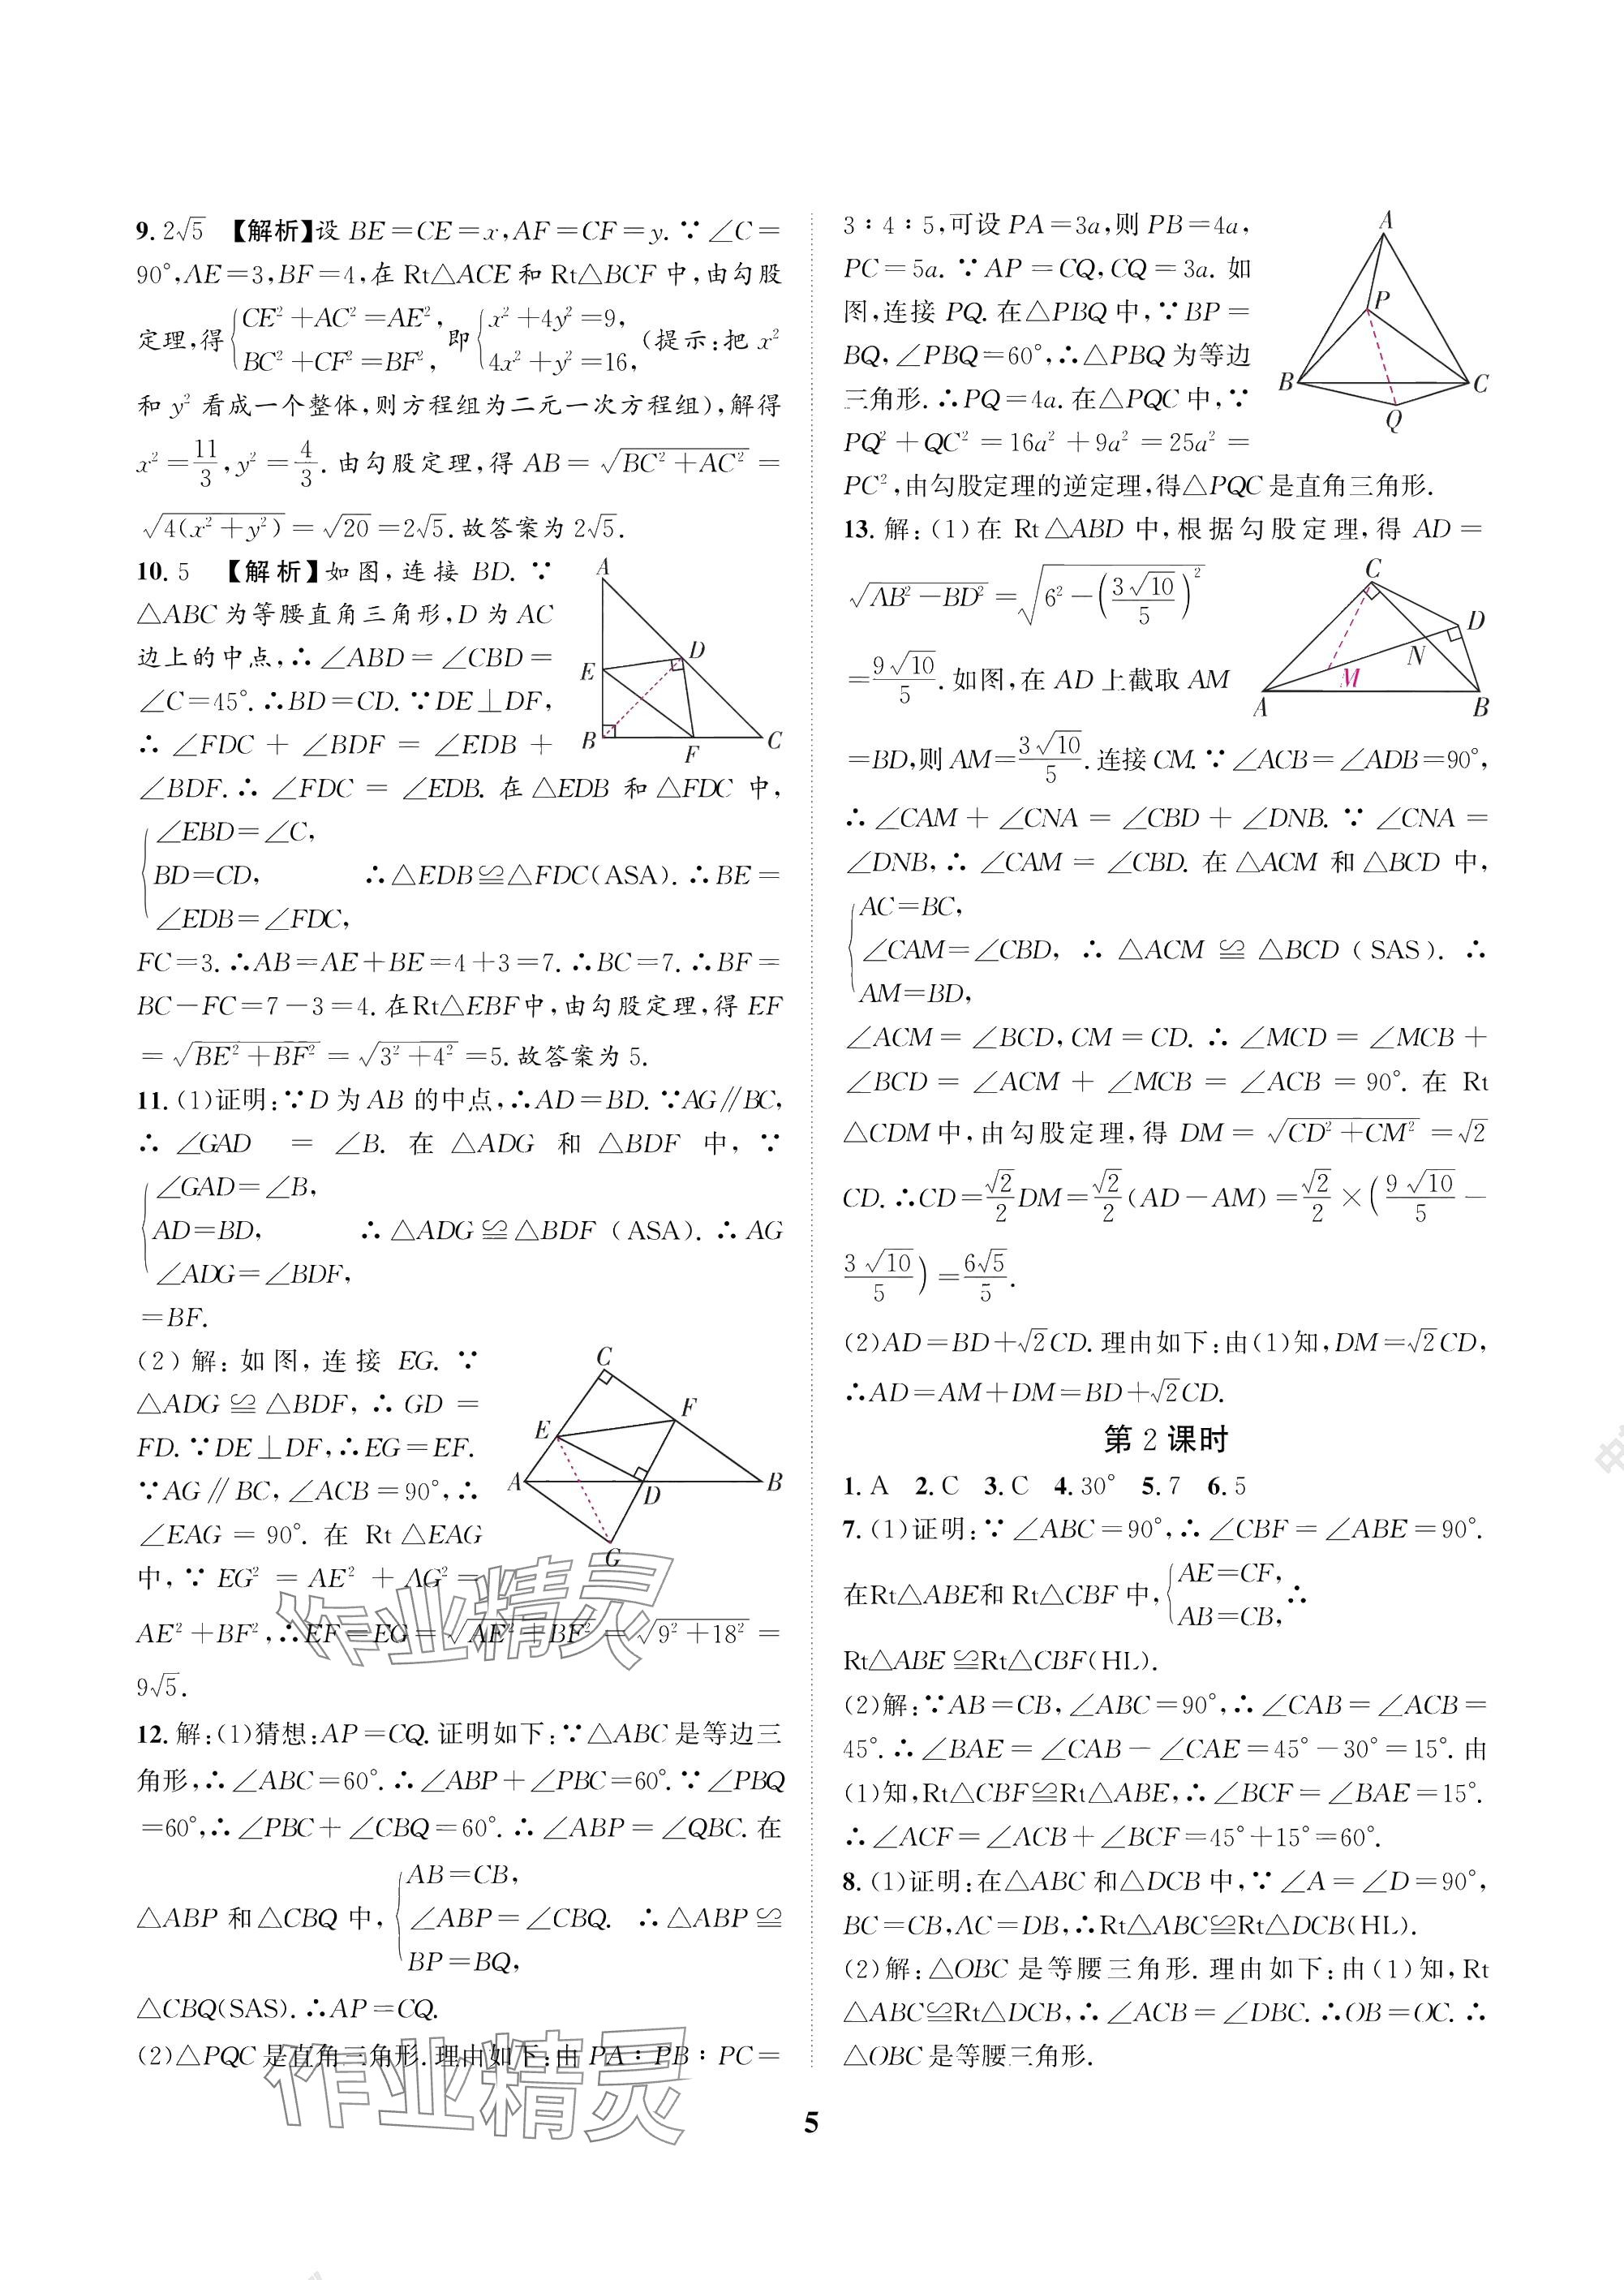 9. 2√5 【解析】设 BE=CE=x,AF=CF=y. ∵∠C=
90°,AE=3,BF=4,在 Rt△ACE 和 Rt△BCF 中,由勾股
定理,得{CE²+AC²=AE², BC²+CF²=BF², 即{x²+4y²=9, 4x²+y²=16, (提示:把 x²
和 y² 看成一个整体,则方程组为二元一次方程组),解得
x²=11/3,y²=4/3. 由勾股定理,得 AB=√(BC²+AC²)=
√(4(x²+y²))=√20=2√5. 故答案为 2√5.
10. 5 【解析】如图,连接 BD. ∵
△ABC 为等腰直角三角形,D 为 AC
边上的中点,∴∠ABD=∠CBD=
∠C=45°. ∴BD=CD. ∵DE⊥DF,
∴∠FDC+∠BDF=∠EDB+
∠BDF. ∴∠FDC=∠EDB. 在△EDB 和△FDC 中,
{∠EBD=∠C,
BD=CD, ∴△EDB≌△FDC(ASA). ∴BE=
∠EDB=∠FDC,
FC=3. ∴AB=AE+BE=4+3=7. ∴BC=7. ∴BF=
BC-FC=7-3=4. 在Rt△EBF中,由勾股定理,得 EF
=√(BE²+BF²)=√(3²+4²)=5. 故答案为 5.
A
D
E
B
F
C
11. (1)证明:∵D 为 AB 的中点,∴AD=BD. ∵AG∥BC,
∴∠GAD=∠B. 在△ADG 和△BDF 中,∵
{∠GAD=∠B,
AD=BD, ∴△ADG≌△BDF(ASA). ∴AG
∠ADG=∠BDF,
=BF.
(2)解:如图,连接 EG. ∵
△ADG≌△BDF,∴GD=
FD. ∵DE⊥DF,∴EG=EF.
∵AG∥BC,∠ACB=90°,∴
∠EAG=90°. 在 Rt△EAG
中,∵EG²=AE²+AG²=
AE²+BF²,∴EF=EG=√(AE²+BF²)=√(9²+18²)=
9√5.
C
F
E
A
D
B
G
12. 解:(1)猜想:AP=CQ. 证明如下:∵△ABC 是等边三
角形,∴∠ABC=60°. ∴∠ABP+∠PBC=60°. ∵∠PBQ
=60°,∴∠PBC+∠CBQ=60°. ∴∠ABP=∠QBC. 在
{AB=CB,
△ABP 和△CBQ 中, ∠ABP=∠CBQ. ∴△ABP≌
BP=BQ,
△CBQ(SAS). ∴AP=CQ.
(2)△PQC 是直角三角形. 理由如下:由 PA∶PB∶PC=
3∶4∶5,可设 PA=3a,则 PB=4a,
PC=5a. ∵AP=CQ,CQ=3a. 如
图,连接 PQ. 在△PBQ 中,∵BP=
BQ,∠PBQ=60°,∴△PBQ 为等边
三角形. ∴PQ=4a. 在△PQC 中,∵
PQ²+QC²=16a²+9a²=25a²=
PC²,由勾股定理的逆定理,得△PQC 是直角三角形.
A
P
B
C
Q
13. 解:(1)在 Rt△ABD 中,根据勾股定理,得 AD=
√(AB²-BD²)=√(6²-(3√10/5)²)
=9√10/5. 如图,在 AD 上截取 AM
=BD,则 AM=3√10/5. 连接 CM. ∵∠ACB=∠ADB=90°,
∴∠CAM+∠CNA=∠CBD+∠DNB. ∵∠CNA=
∠DNB,∴∠CAM=∠CBD. 在△ACM 和△BCD 中,
{AC=BC,
∠CAM=∠CBD, ∴△ACM≌△BCD(SAS). ∴
AM=BD,
∠ACM=∠BCD,CM=CD. ∴∠MCD=∠MCB+
∠BCD=∠ACM+∠MCB=∠ACB=90°. 在 Rt
△CDM 中,由勾股定理,得 DM=√(CD²+CM²)=√2
CD. ∴CD=√2/2 DM=√2/2(AD-AM)=√2/2×(9√10/5-
3√10/5)=6√5/5.
(2)AD=BD+√2CD. 理由如下:由(1)知,DM=√2CD,
∴AD=AM+DM=BD+√2CD.
C
D
N
M
A
B
第 2 课时
1. A 2. C 3. C 4. 30° 5. 7 6. 5
7. (1)证明:∵∠ABC=90°,∴∠CBF=∠ABE=90°.
在Rt△ABE和 Rt△CBF 中,{AE=CF, AB=CB, ∴
Rt△ABE≌Rt△CBF(HL).
(2)解:∵AB=CB,∠ABC=90°,∴∠CAB=∠ACB=
45°. ∴∠BAE=∠CAB-∠CAE=45°-30°=15°. 由
(1)知,Rt△CBF≌Rt△ABE,∴∠BCF=∠BAE=15°.
∴∠ACF=∠ACB+∠BCF=45°+15°=60°.
8. (1)证明:在△ABC 和△DCB 中,∵∠A=∠D=90°,
BC=CB,AC=DB,∴Rt△ABC≌Rt△DCB(HL).
(2)解:△OBC 是等腰三角形. 理由如下:由(1)知,Rt
△ABC≌Rt△DCB,∴∠ACB=∠DBC. ∴OB=OC. ∴
△OBC 是等腰三角形.
作业精灵
作业精灵
5